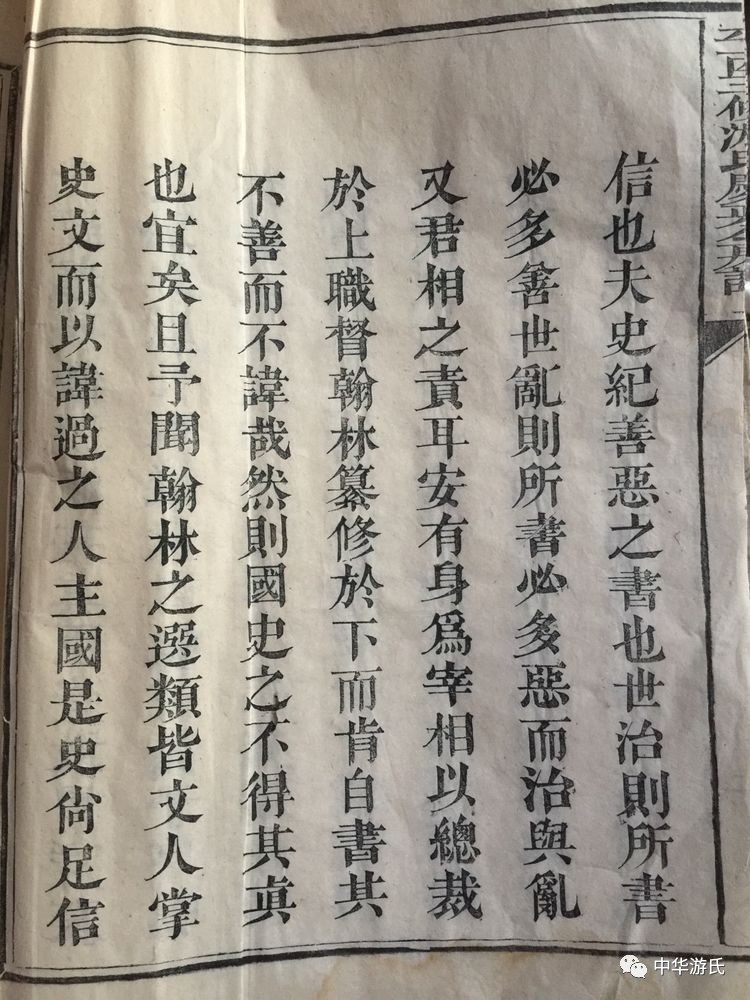 信也夫史紀善惡之書也世治則所書
必多善世亂則所書必多惡而治與亂
又君相之責耳安有身爲宰相以總裁
於上職督翰林纂修於下而肯自書其
不善而不諱哉然則國史之不得其眞
也宜矣且予聞翰林之選類皆文人掌
史文而以諱過之人主國是史尙足信
中华游氏